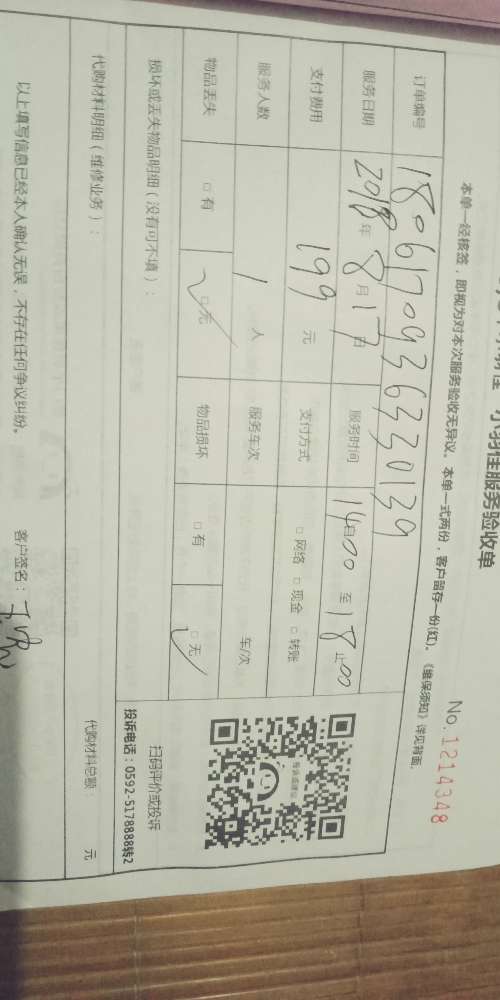 小羽佳服务验收单
No.1214348
本单一经核签，即视为对本次服务验收无异议。本单一式两份，客户留存一份(红)。《维保须知》详见背面.
订单编号 1806170936330139
服务日期 2018年8月17日 服务时间 14:00至18:00止
支付费用 199元 支付方式 □网络 □现金 □转账
服务人数 1人 服务车次 车/次
物品丢失 □有 □无 物品损坏 □有 □无
损坏或丢失物品明细（没有可不填）：
扫码评价或投诉
投诉电话：0592-5178888转2
代购材料明细（维修业务）：
代购材料总额： 元
以上填写信息已经本人确认无误，不存在任何争议纠纷。 客户签名：